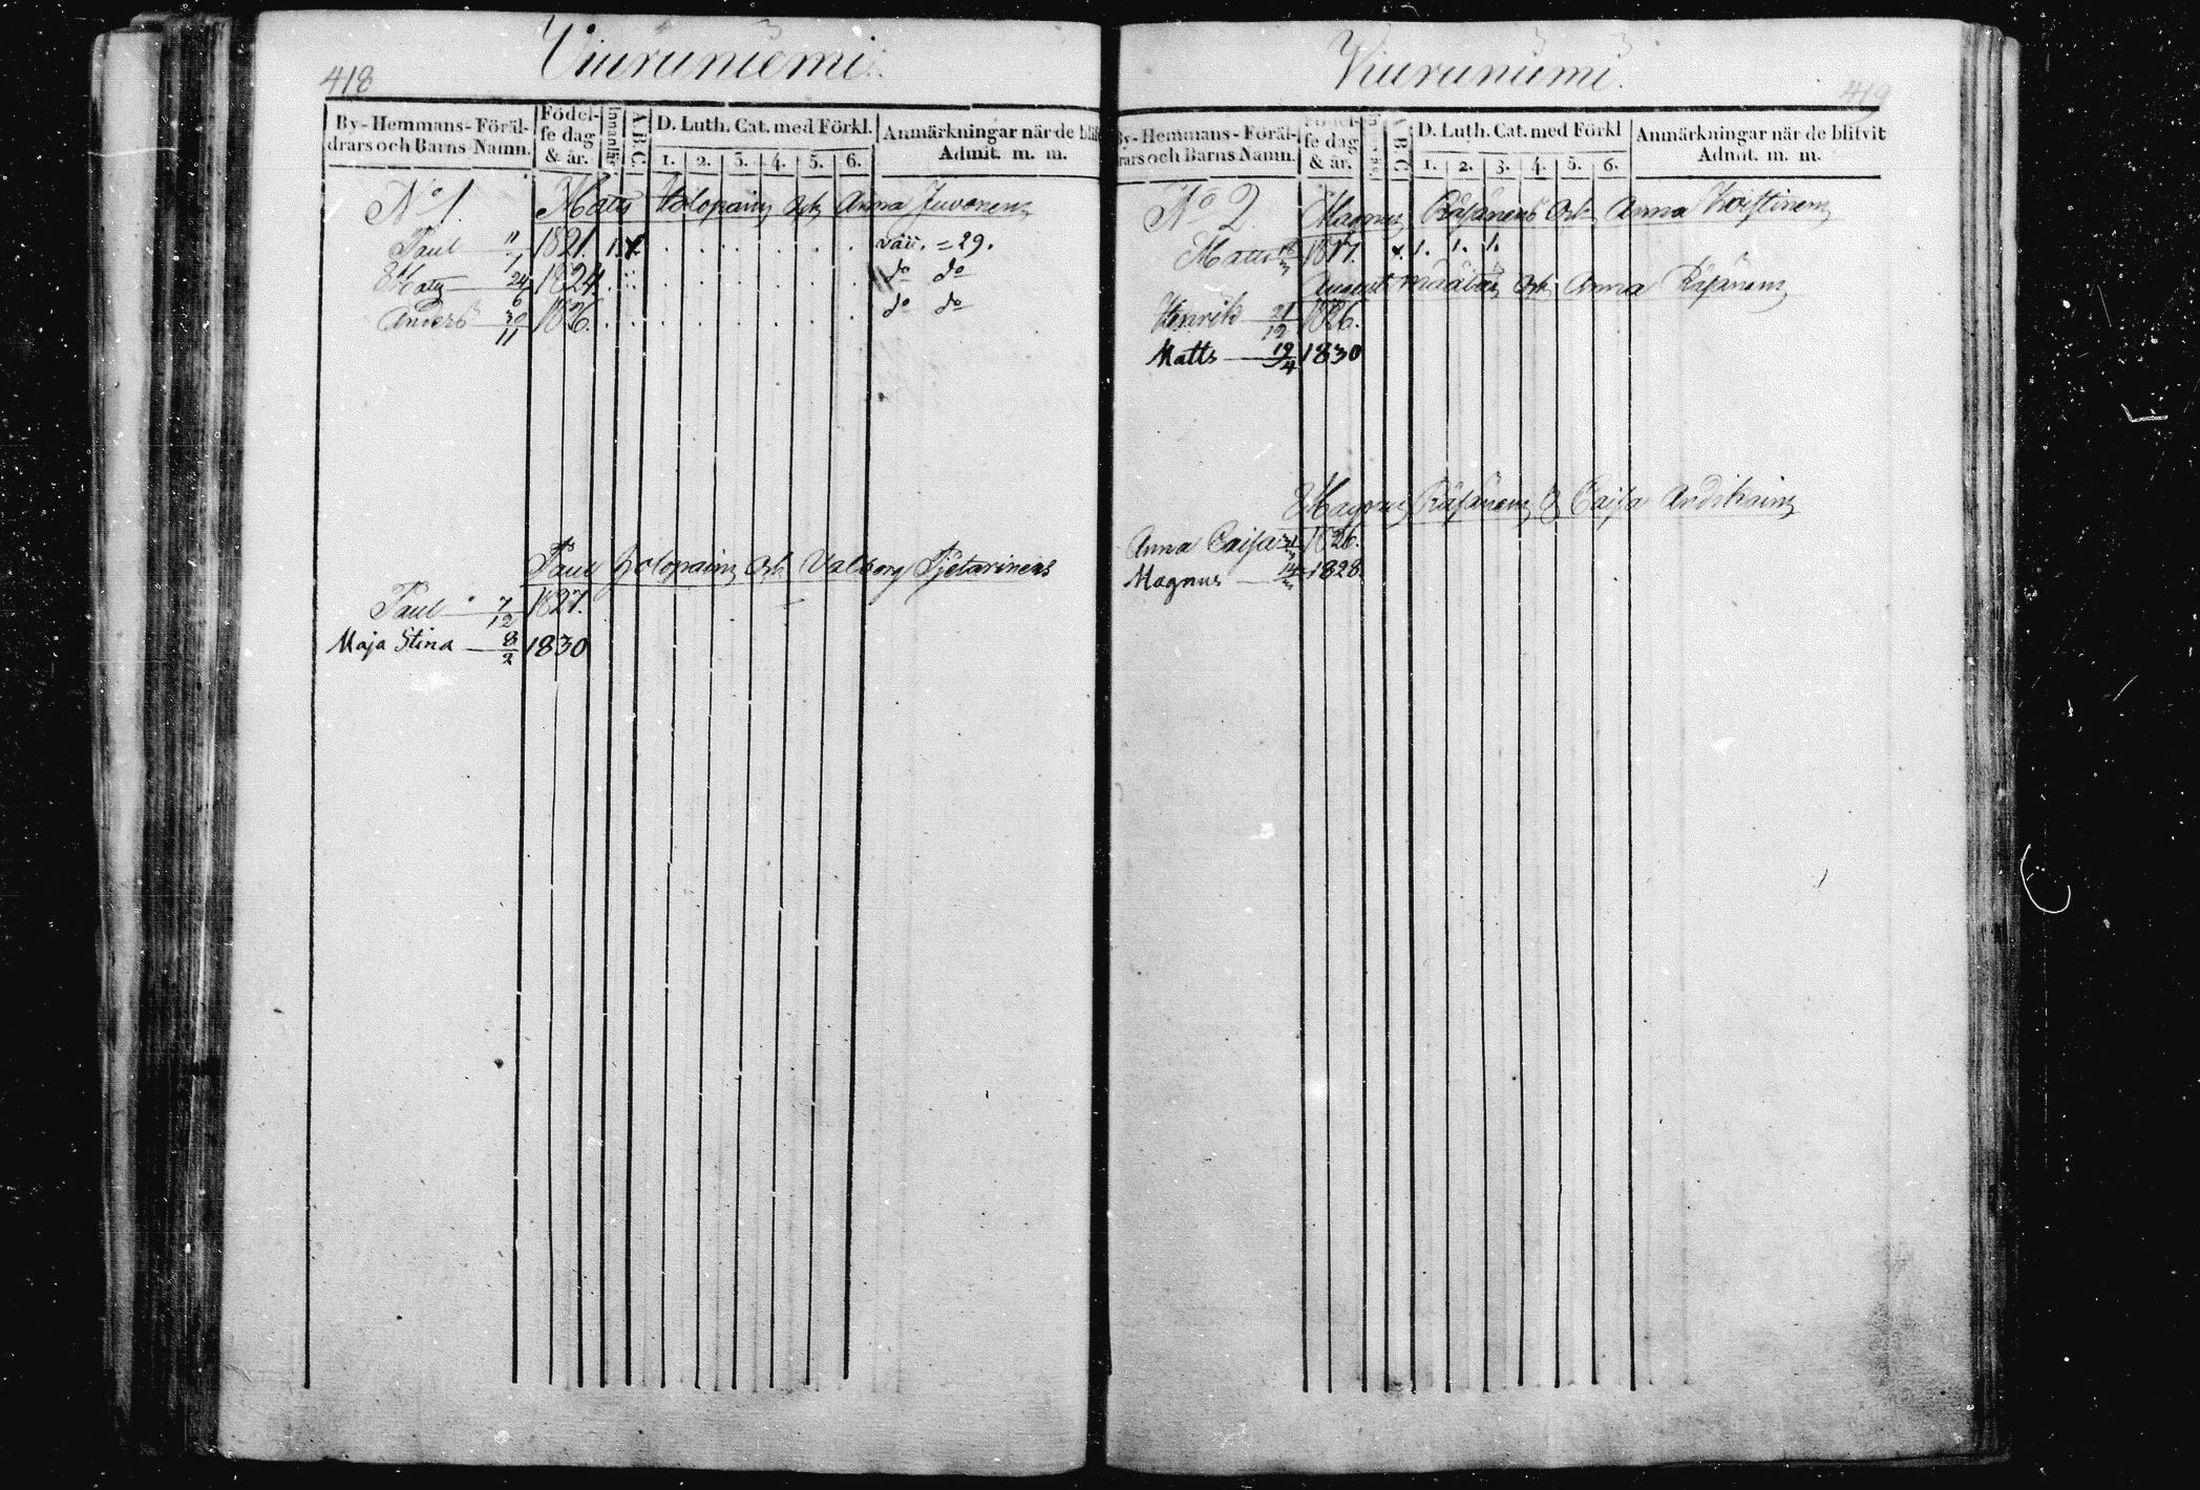 418
Viuruniemi.
By-Hemmans-Föräl-
drars och Barns Namn.
Födel-
se dag
& år.
Innanläs
A.B.C.
D. Luth. Cat. med Förkl.
1. 2. 3. 4. 5. 6.
Anmärkningar när de blif
Admit. m. m.
No 1. Mats Holopain och Anna Juvonens
Paul 11/1 1821. 1. x. vac. = 29.
Mats 24/6 1824. do do
Anders 30/11 1826. do do
Paul Holopain och Valborg Pjetarinens
Paul 7/12 1827.
Maja Stina 8/2 1830
419
Viuruniemi.
By-Hemmans-Föräl-
drars och Barns Namn.
Födel-
se dag
& år.
A.B.C.
D. Luth. Cat. med Förkl
1. 2. 3. 4. 5. 6.
Anmärkningar när de blifvit
Admit. m. m.
No 2. Magnus Räsänens och Anna Koistinens
Matts 1817. x. 1. 1. 1.
August och Anna Räsänens
Henrik 21/12 1826.
Matts 19/4 1830
Magnus Räsänens & Caisa
Anna Caisa 1826.
Magnus 1828.